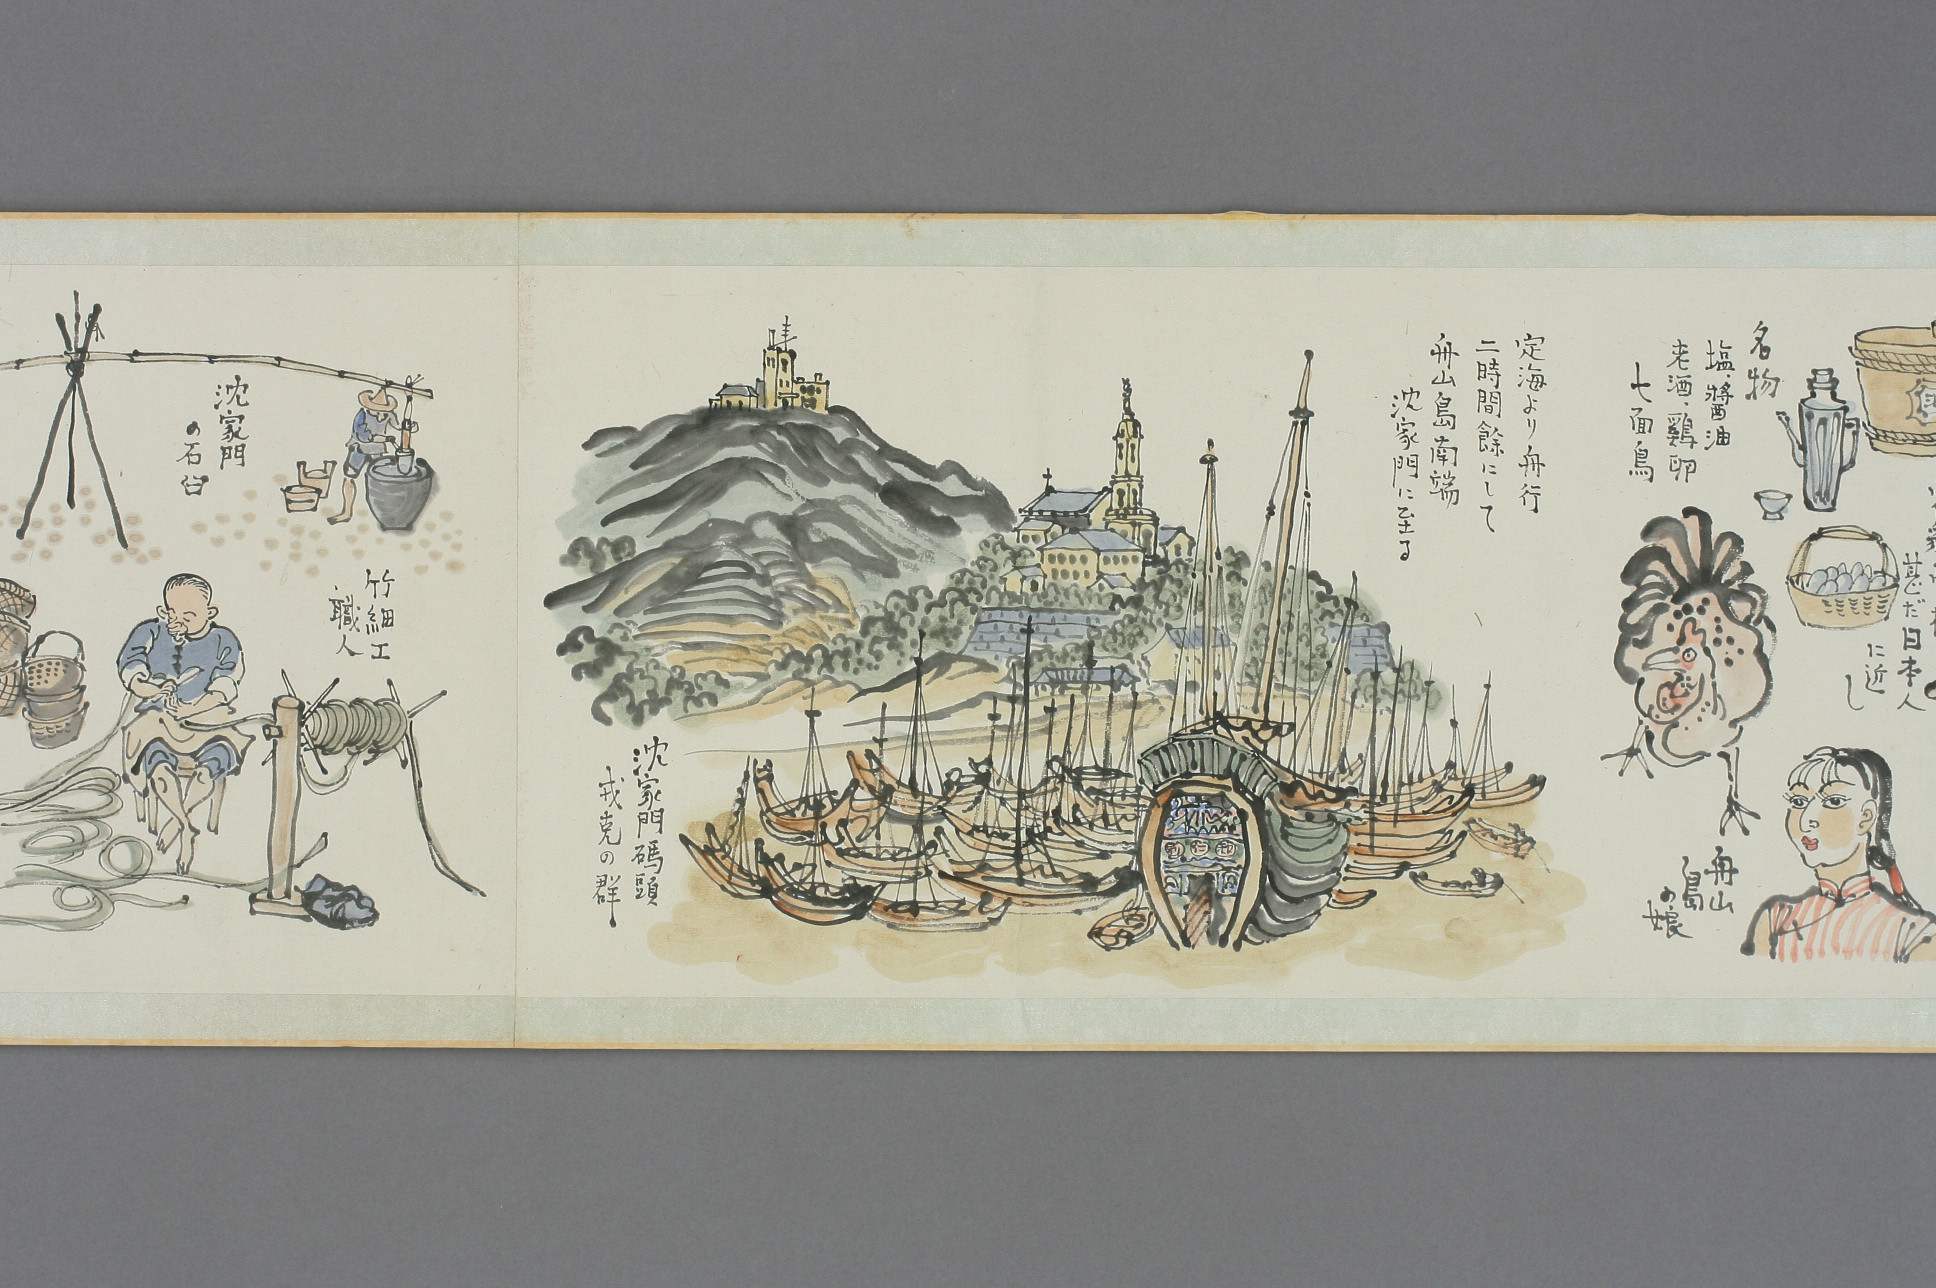 甚だ日本人
に近し
名物
塩、醤油
老酒、鶏卵
七面鳥
舟山
島
の娘
定海より舟行
二時間餘にして
舟山島南端
沈家門に至る
沈家門碼頭
戎克の群
沈家門
の石臼
竹細工
職人